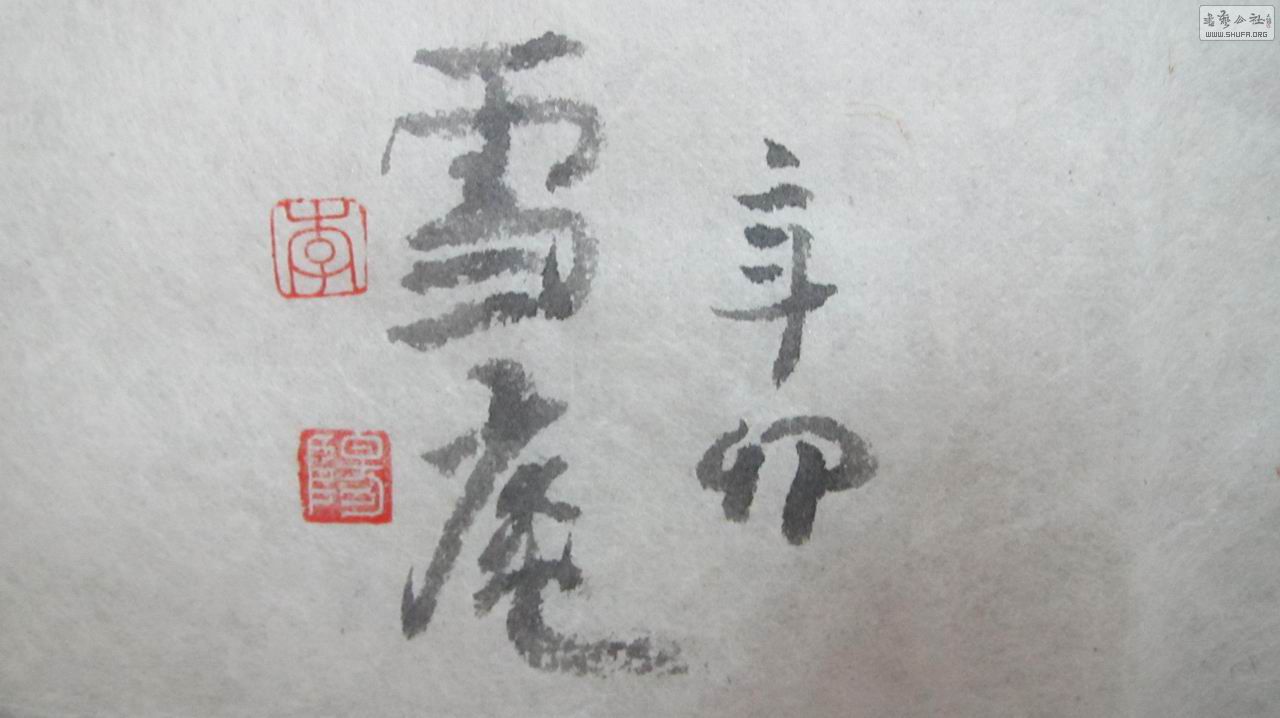 辛卯
雪庵
李
陽
書藝公社
WWW.SHUFA.ORG